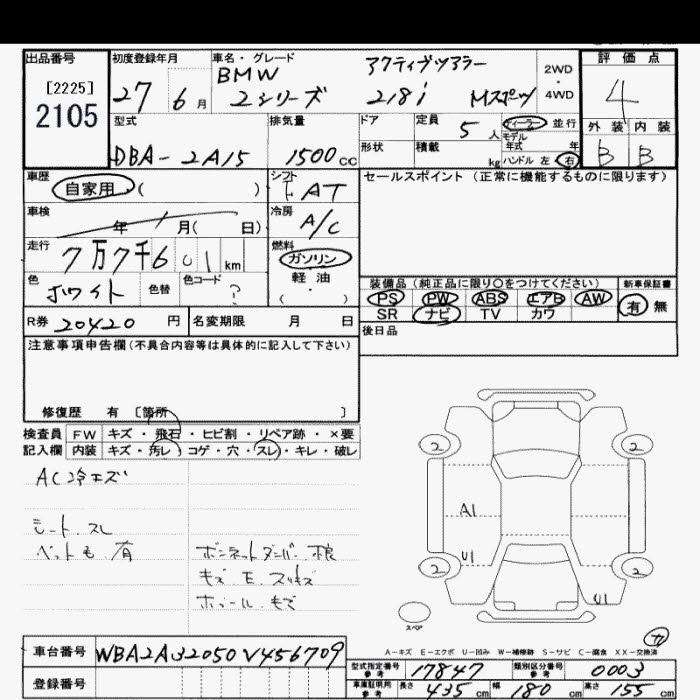 出品番号
[2225]
2105
初度登録年月
27 6月
車名・グレード
BMW アクティブツアラー
2シリーズ 218i Mスポーツ
2WD
・
4WD
評価点
4
外装 内装
B B
型式
DBA-2A15
排気量
1500cc
ドア
定員
5人
形状
積載
kg
ディーラー 並行
モデル
年式 年
ハンドル 左 右
車歴
自家用 ( )
シフト
F AT
車検
年 月( 日)
冷房
A/C
走行
7万7千601km
燃料
ガソリン
軽油
( ・ )
色
ホワイト
色替
色コード
?
R券 20420円
名変期限 月 日
セールスポイント(正常に機能するものに限ります)
装備品(純正品に限り○をつけてください)
新車保証書
PS PW ABS エアB AW
有 無
SR ナビ TV カワ
後日品
注意事項申告欄(不具合内容等は具体的に記入して下さい)
修復歴 有 〔箇所 〕
検査員
記入欄
FW キズ・飛石・ヒビ割・リペア跡・×要
内装 キズ・汚レ・コゲ・穴・スレ・キレ・破レ
AC冷エズ
シート.スレ
ペット毛.有
キズ.E.スリキズ
2 2
A1
U1
2 2
U1
スペア
A-キズ E-エクボ U-凹み W-補修跡 S-サビ C-腐食 XX-交換済
車台番号 WBA2A32050V456709
登録番号
型式指定番号
参考
17847
類別区分番号
参考
0003
車庫証明用
参考
長さ 435cm
幅 180cm
高さ 155cm